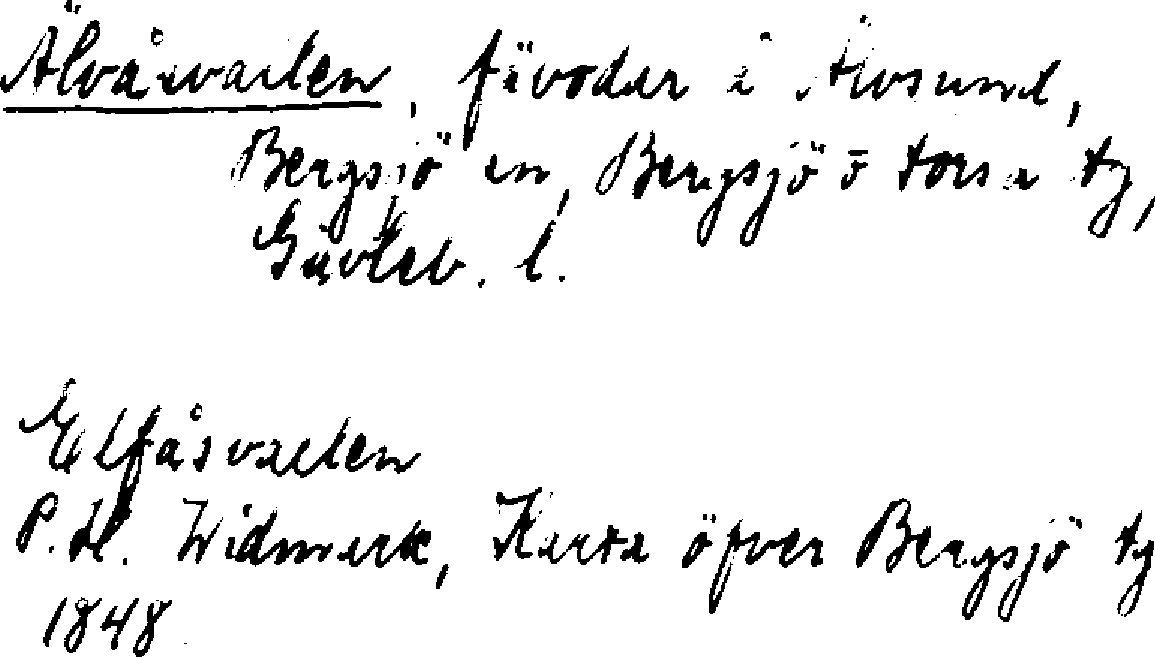 Älvåsvallen, fävodar i Älvsund,
Bergsjö sn, Bergsjö o Forsa tg,
Gävleb. l.
Elfåsvallen
P. H. Widmark, Karta öfver Bergsjö tg
1848